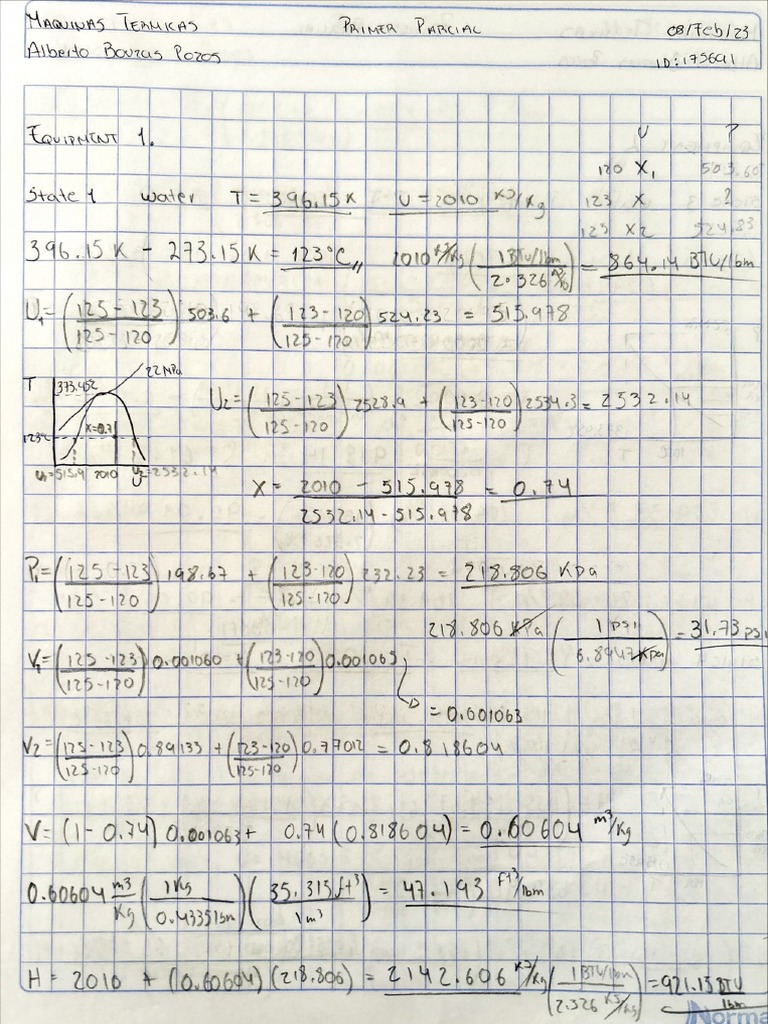 MAQUINAS TERMICAS PRIMER PARCIAL 08/Feb/23
Alberto Bouzas Pozos ID: 175691
EQUIPMENT 1.
U P
120 X₁ 503.60
State 1 water T = 396.15 K U = 2010 KJ/Kg 123 X ?
125 X2 524.83
396.15 K - 273.15 K = 123°C,, 2010 KJ/Kg (1 BTU/lbm / 2.326 KJ/Kg) = 864.14 BTU/lbm
U₁ = (125-123 / 125-120) 503.6 + (123-120 / 125-120) 524.23 = 515.978
T 373.95°C 22 MPa
U₂ = (125-123 / 125-120) 2528.9 + (123-120 / 125-120) 2534.3 = 2532.14
X=0.7
123°C
U₁=515.9 2010 U₂=2532.14
X = 2010 - 515.978 / 2532.14 - 515.978 = 0.74
P₁ = (125-123 / 125-120) 198.67 + (123-120 / 125-120) 232.23 = 218.806 KPa
218.806 KPa (1 psi / 6.8947 KPa) = 31.73 psi
V₁ = (125-123 / 125-120) 0.001060 + (123-120 / 125-120) 0.001065
= 0.001063
V₂ = (125-123 / 125-120) 0.89133 + (123-120 / 125-120) 0.77012 = 0.818604
V = (1-0.74) 0.001063 + 0.74 (0.818604) = 0.60604 m³/Kg
0.60604 m³/Kg (1 Kg / 0.4335 lbm) (35.315 ft³ / 1 m³) = 47.193 ft³/lbm
H = 2010 + (0.60604) (218.806) = 2142.606 KJ/Kg (1 BTU/lbm / 2.326 KJ/Kg) = 921.13 BTU/lbm
Norma